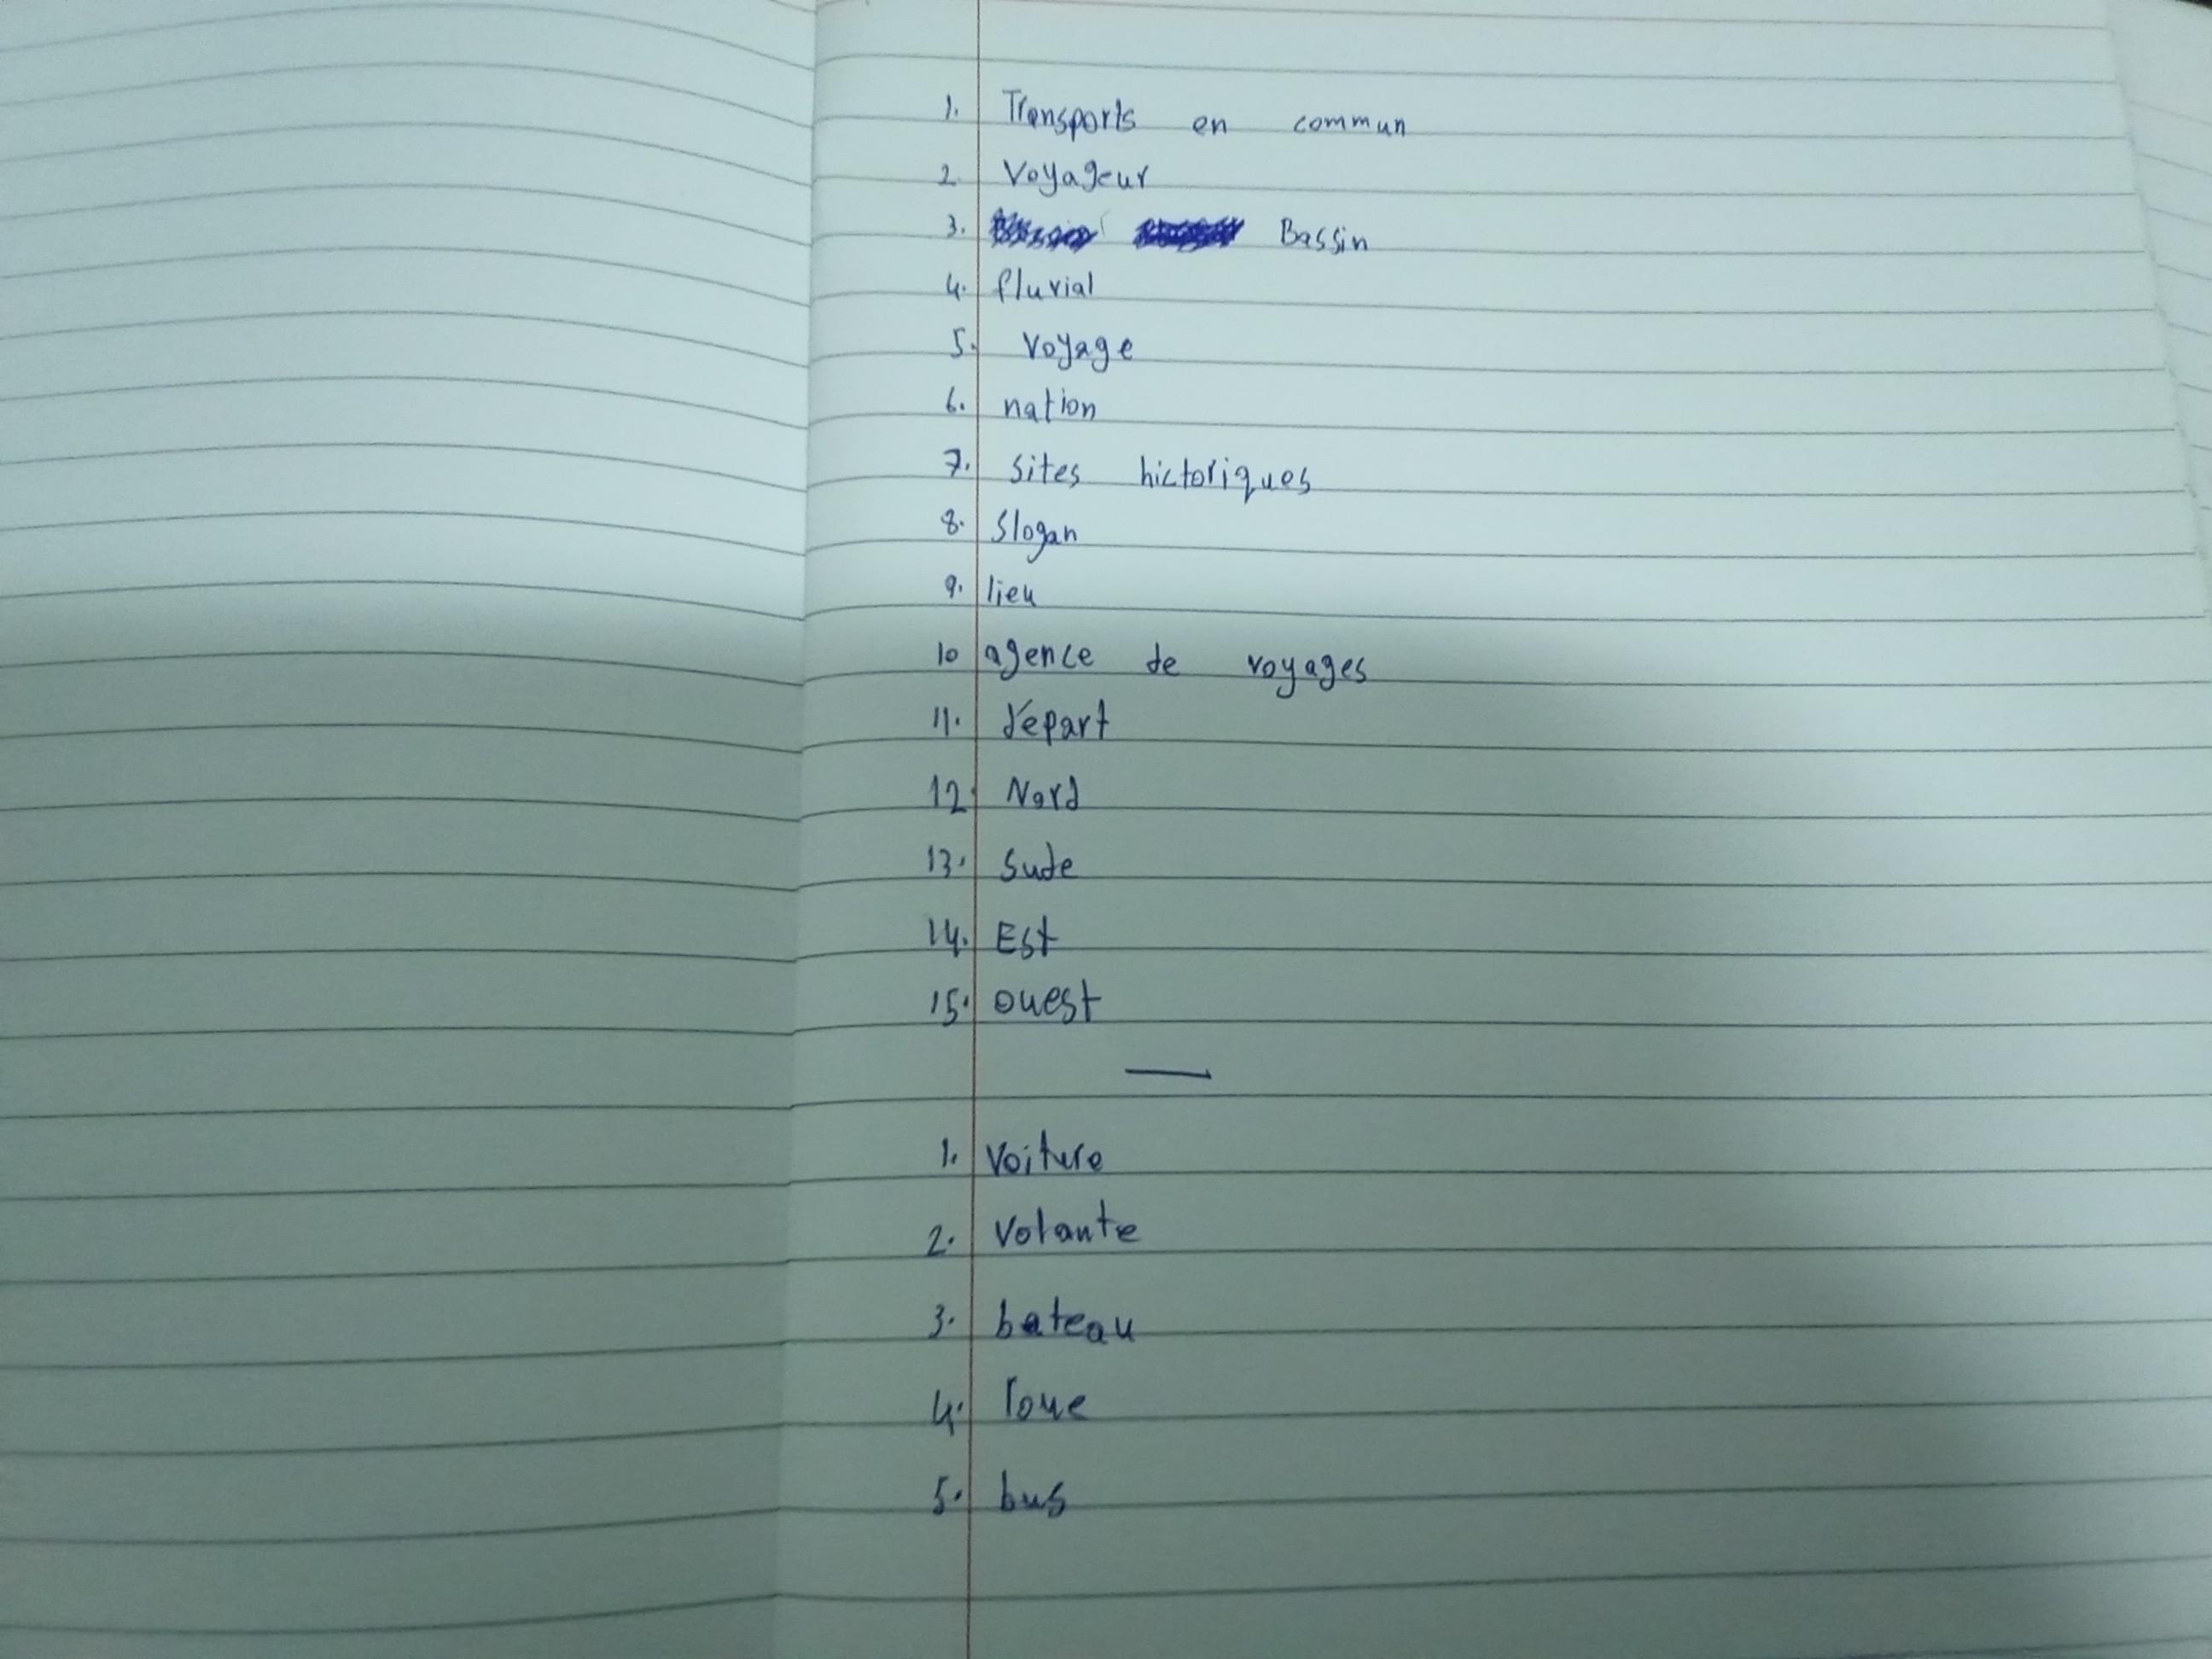 1. Transports en commun
2 Voyageur
3. Bassin
4. fluvial
5. Voyage
6. nation
7. sites hictoriques
8. Slogan
9. lieu
10 agence de voyages
11. départ
12. Nord
13. Sude
14. Est
15. ouest
1. Voiture
2. Volante
3. bateau
4. roue
5. bus